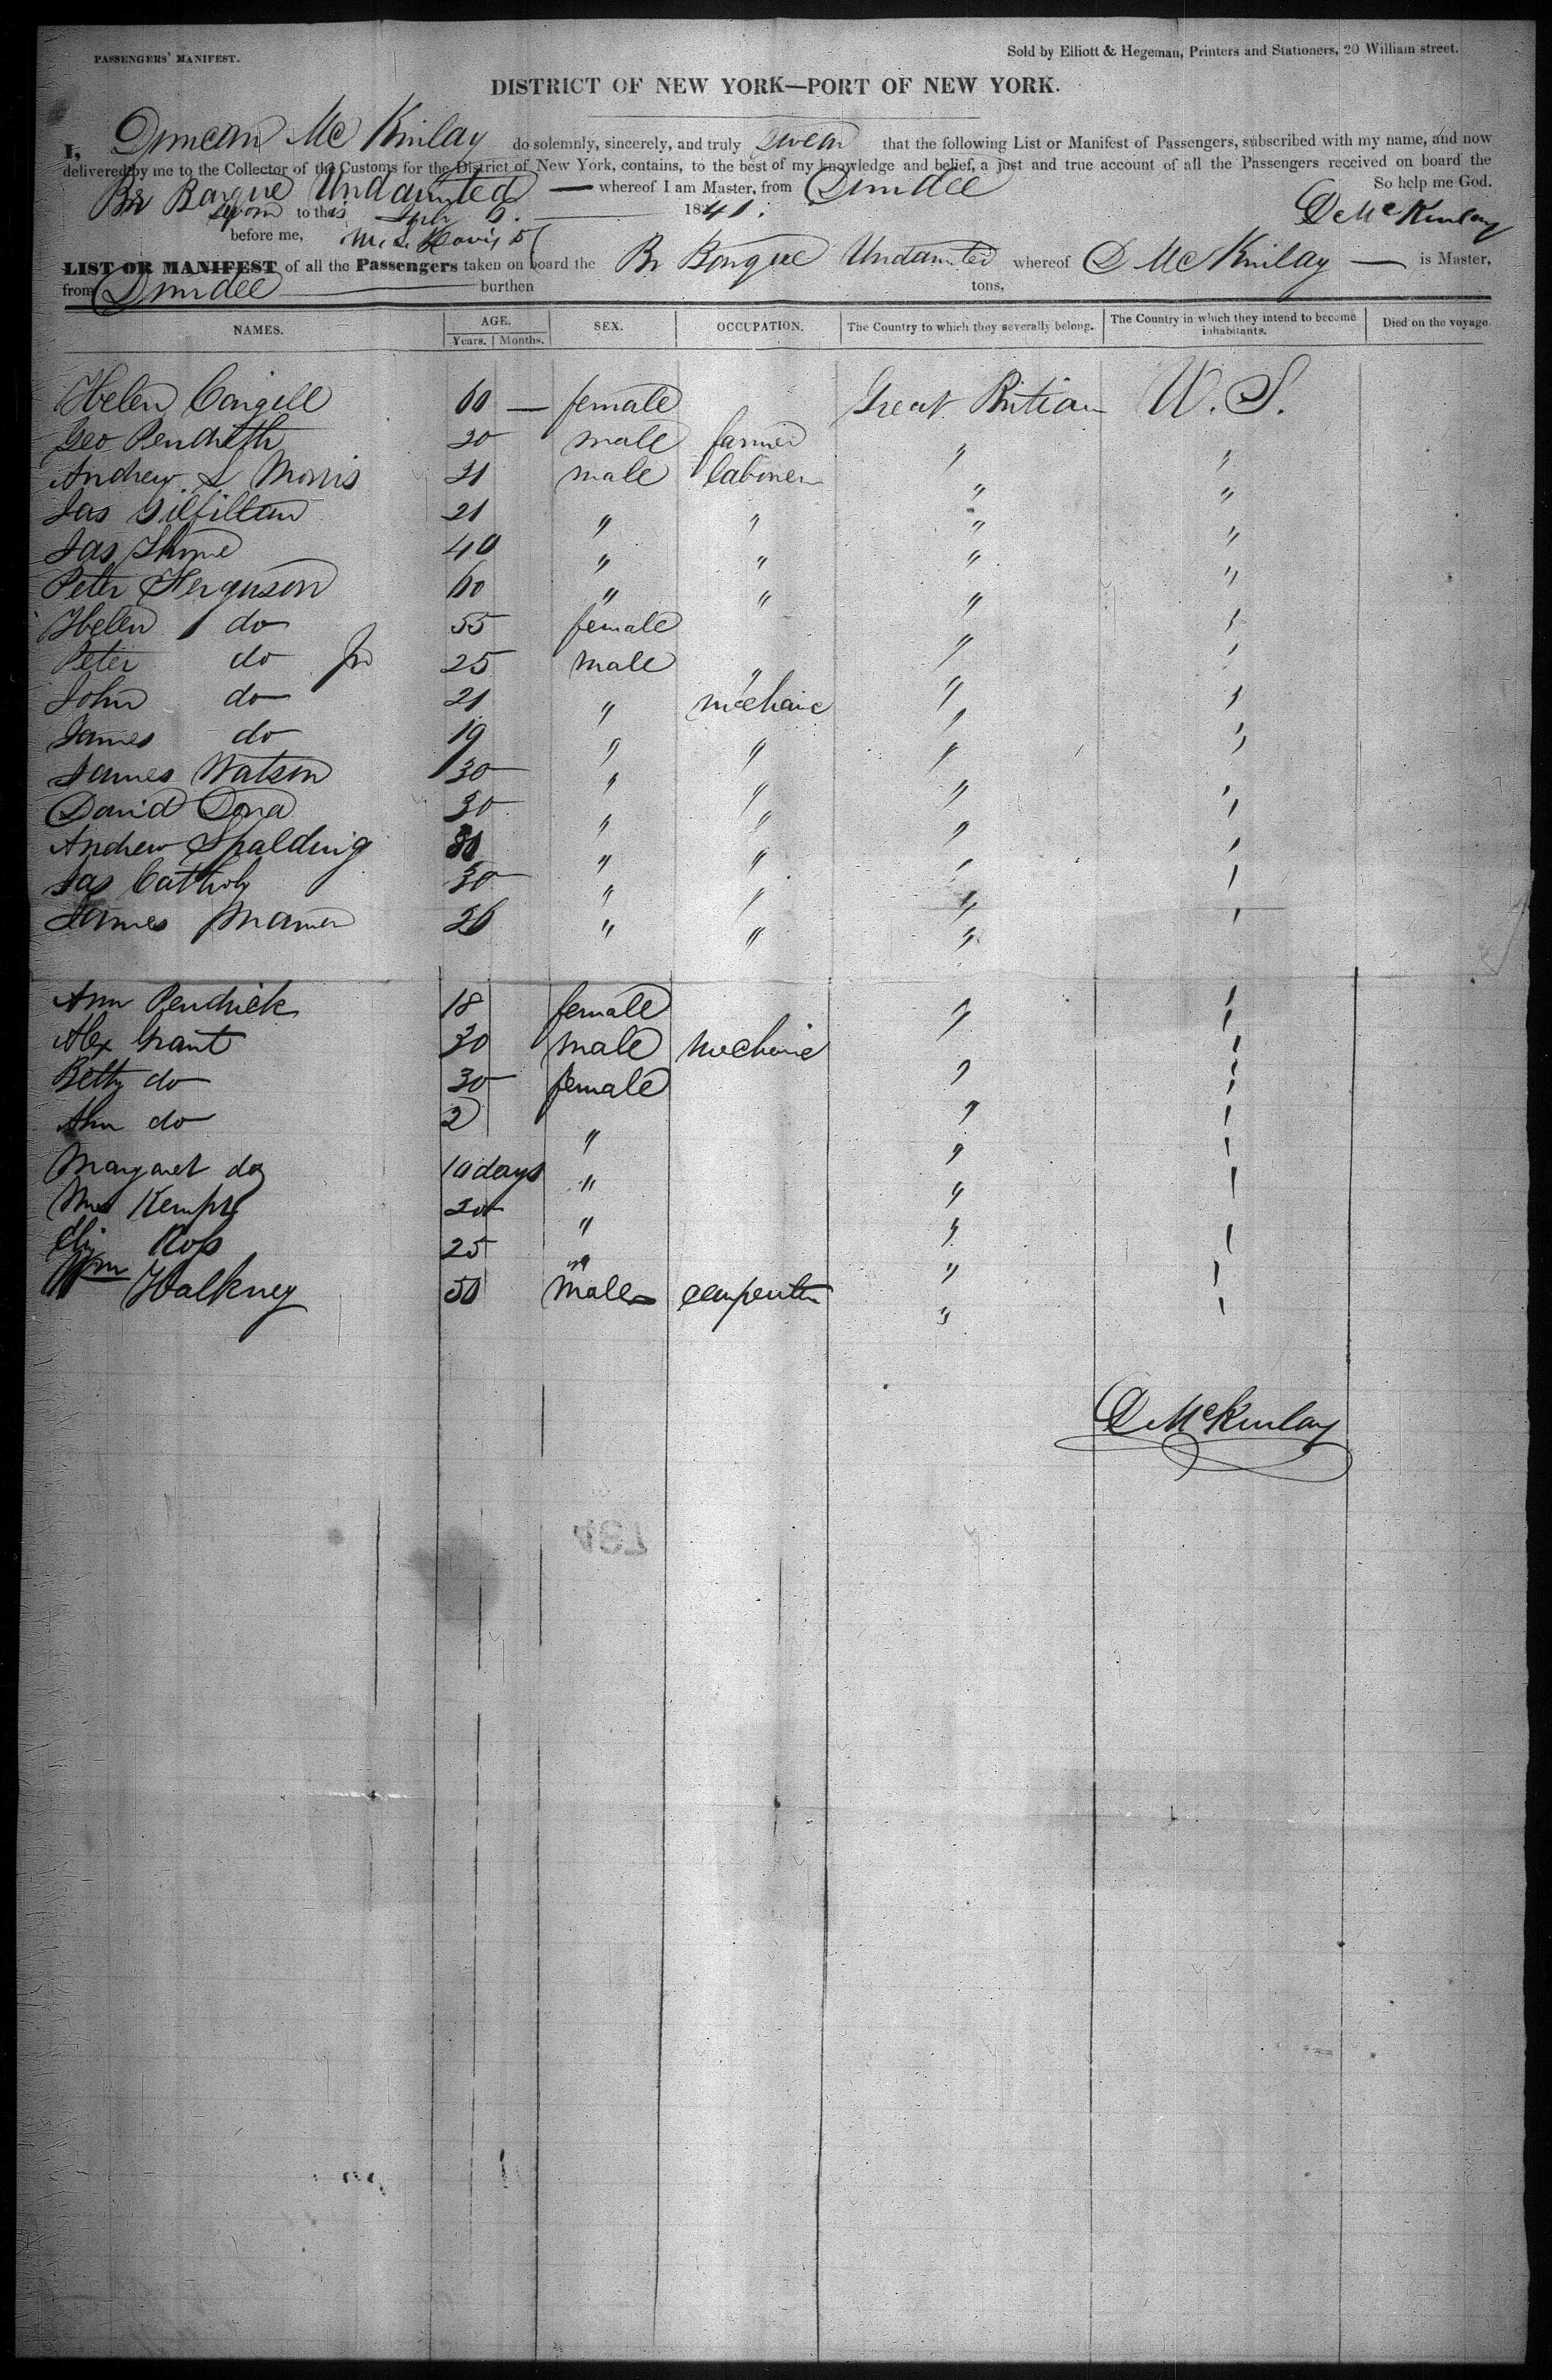 PASSENGERS' MANIFEST.
Sold by Elliott & Hegeman, Printers and Stationers, 20 William street.
DISTRICT OF NEW YORK—PORT OF NEW YORK.
I, Duncan Mc Kinlay do solemnly, sincerely, and truly Swear that the following List or Manifest of Passengers, subscribed with my name, and now
delivered by me to the Collector of the Customs for the District of New York, contains, to the best of my knowledge and belief, a just and true account of all the Passengers received on board the
Br Barque Undaunted — whereof I am Master, from Dundee So help me God.
Sworn to this 1841. D McKinlay
before me,
LIST OR MANIFEST of all the Passengers taken on board the Br Barque Undaunted whereof D McKinlay — is Master,
from Dundee burthen tons,
NAMES. AGE. SEX. OCCUPATION. The Country to which they severally belong. The Country in which they intend to become inhabitants. Died on the voyage.
Years. Months.
Helen Cargill 60 — female Great Britian U. S.
Geo 30 male farmer " "
Andrew S Morris 21 male laborer " "
Jas Gilfillan 21 " " " "
Jas 40 " " " "
Peter Ferguson 60 " " " "
Helen do 55 female " "
Peter do Jr 25 male " " "
John do 21 " mechanic " "
James do 19 " " " "
James Watson 30 " " " "
David 30 " " " "
Andrew Spalding " " " "
Jas 30 " " " "
James 26 " " " "
Ann Pendrick 18 female " "
Alex Grant 30 male mechanic " "
Betty do 30 female " "
Ann do 2 " " "
Margaret do 10 days " " "
Mrs 20 " " "
Ross 25 " " "
Wm Halkney 50 male carpenter " "
D McKinlay